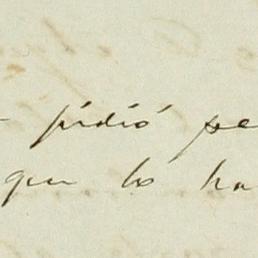 pidió pe
que lo ha